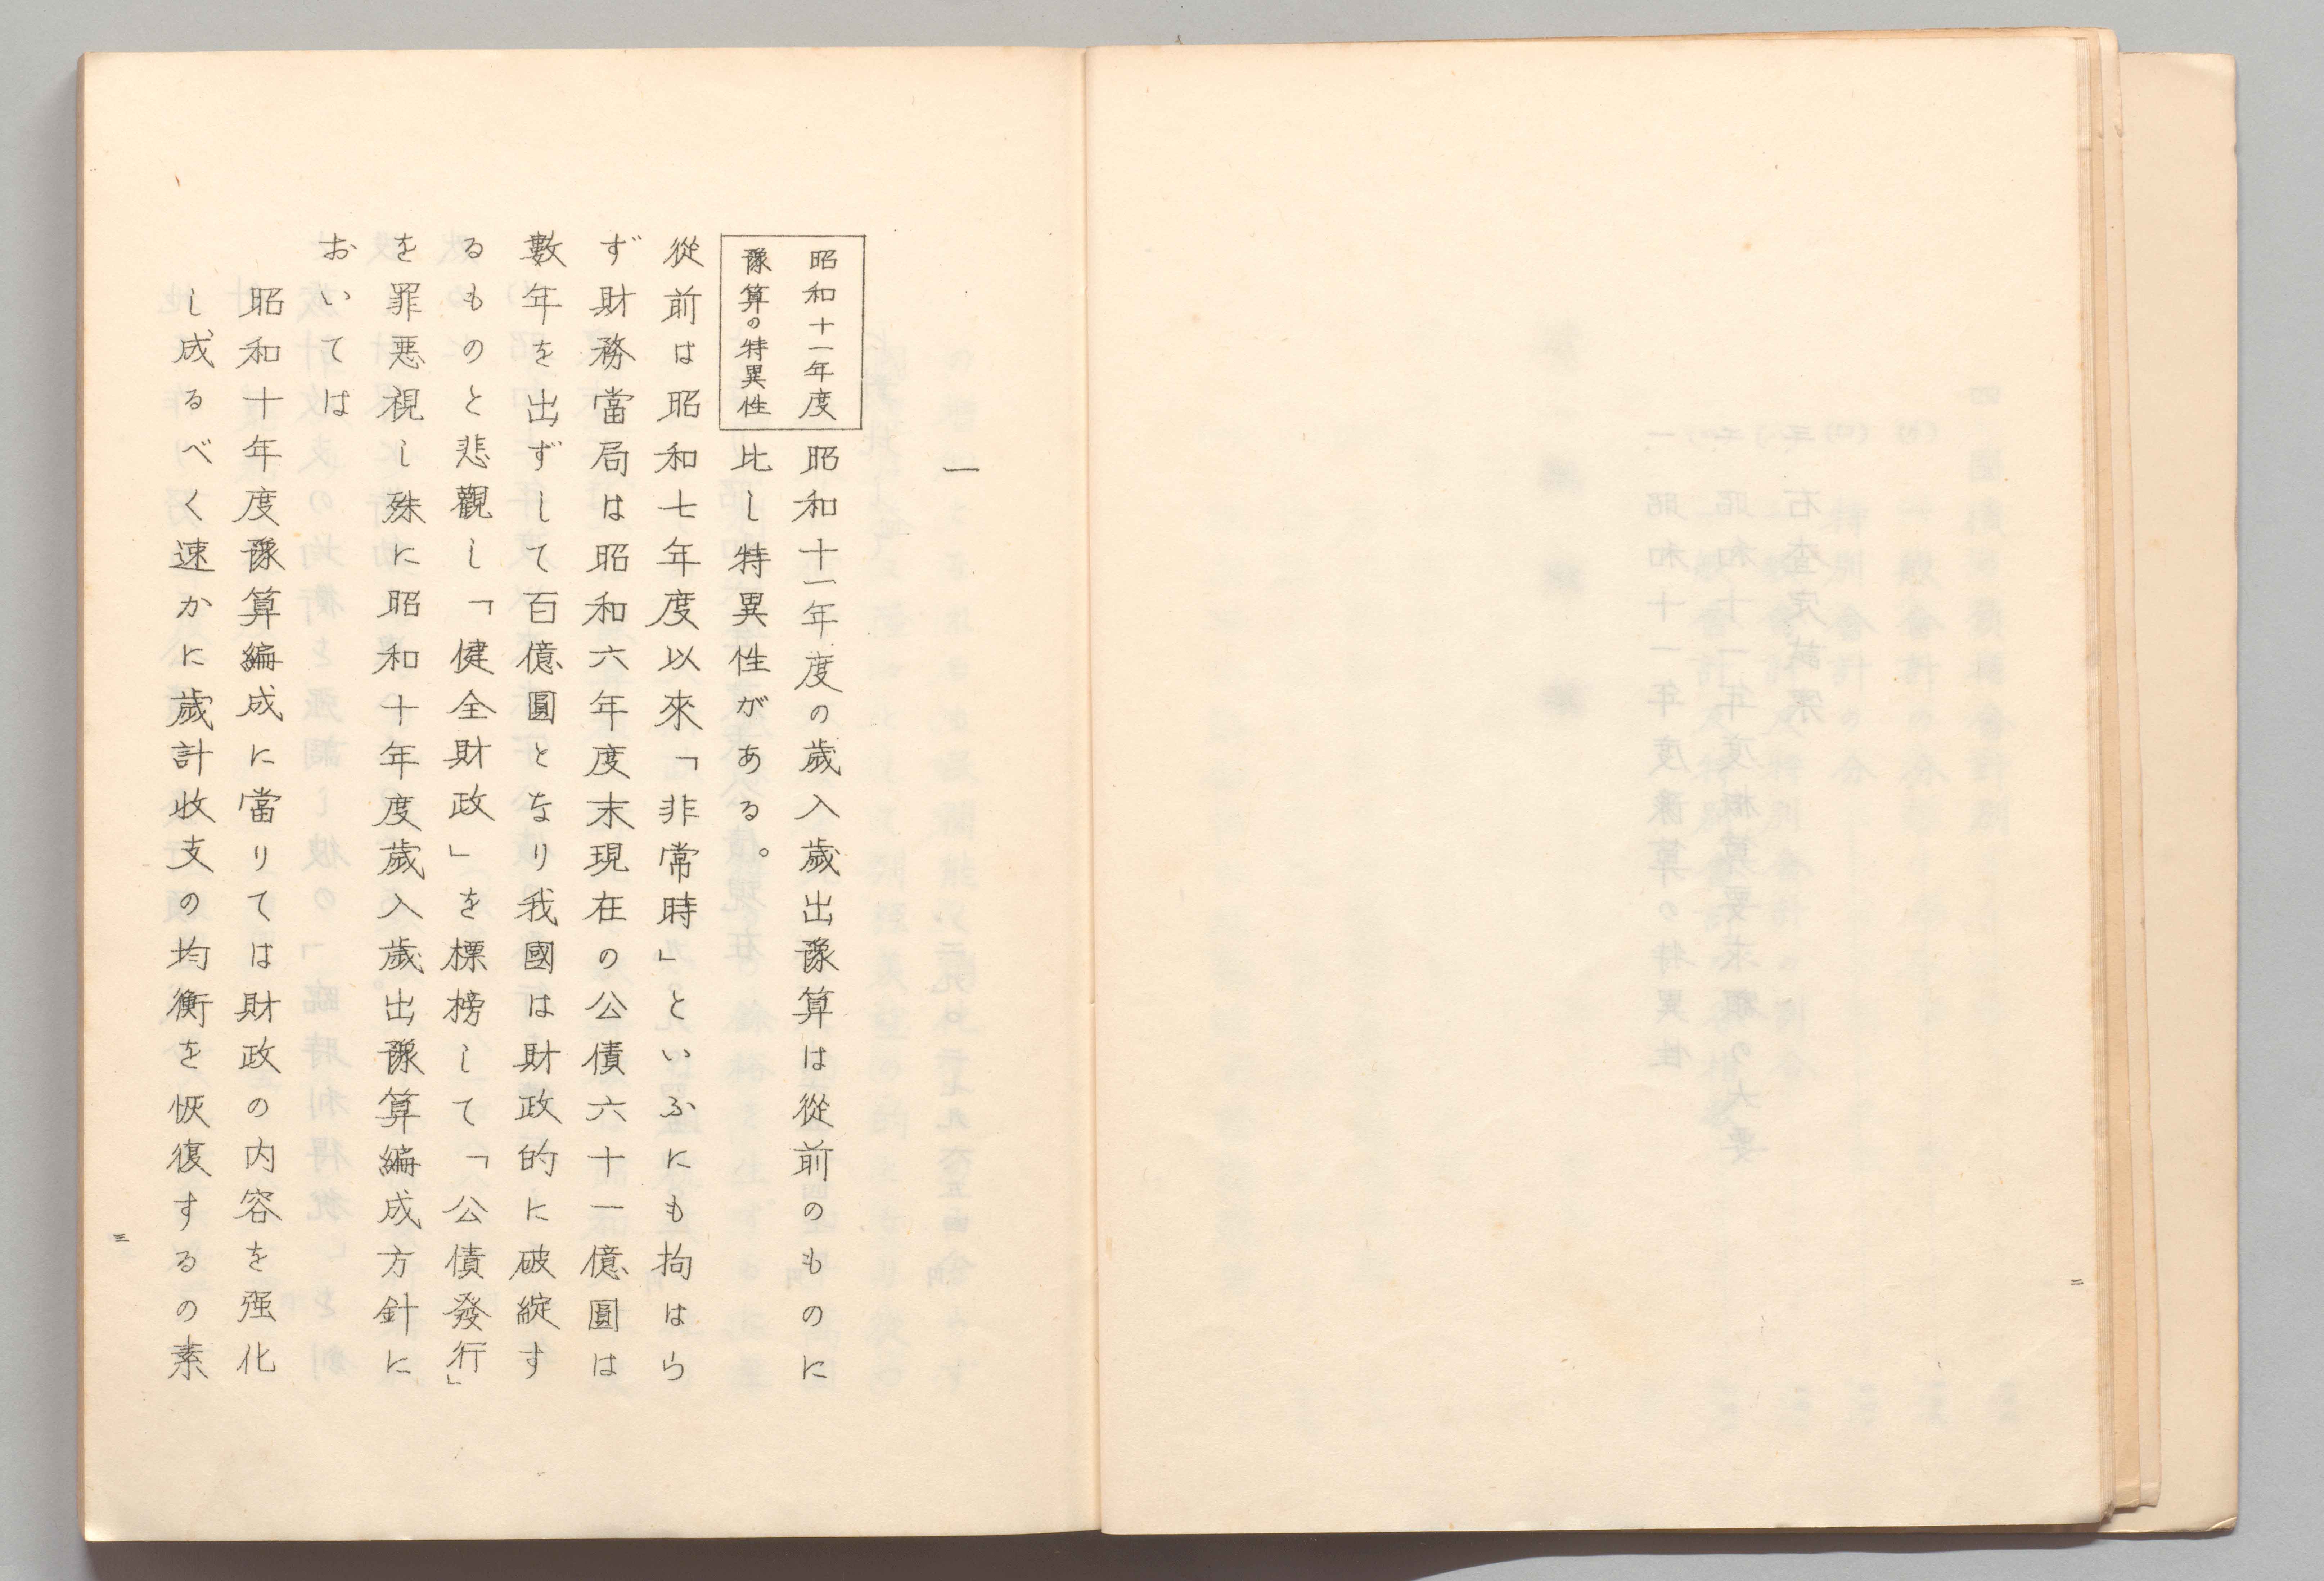 二
一
昭和十一年度
豫算の特異性
昭和十一年度の歲入歲出豫算は從前のものに
比し特異性がある。
從前は昭和七年度以來「非常時」といふにも拘はら
ず財務當局は昭和六年度末現在の公債六十一億圓は
數年を出ずして百億圓となり我國は財政的に破綻す
るものと悲觀し「健全財政」を標榜して「公債發行」
を罪悪視し殊に昭和十年度歲入歲出豫算編成方針に
おいては
昭和十年度豫算編成に當りては財政の內容を强化
し成るべく速かに歲計收支の均衡を恢復するの素
三